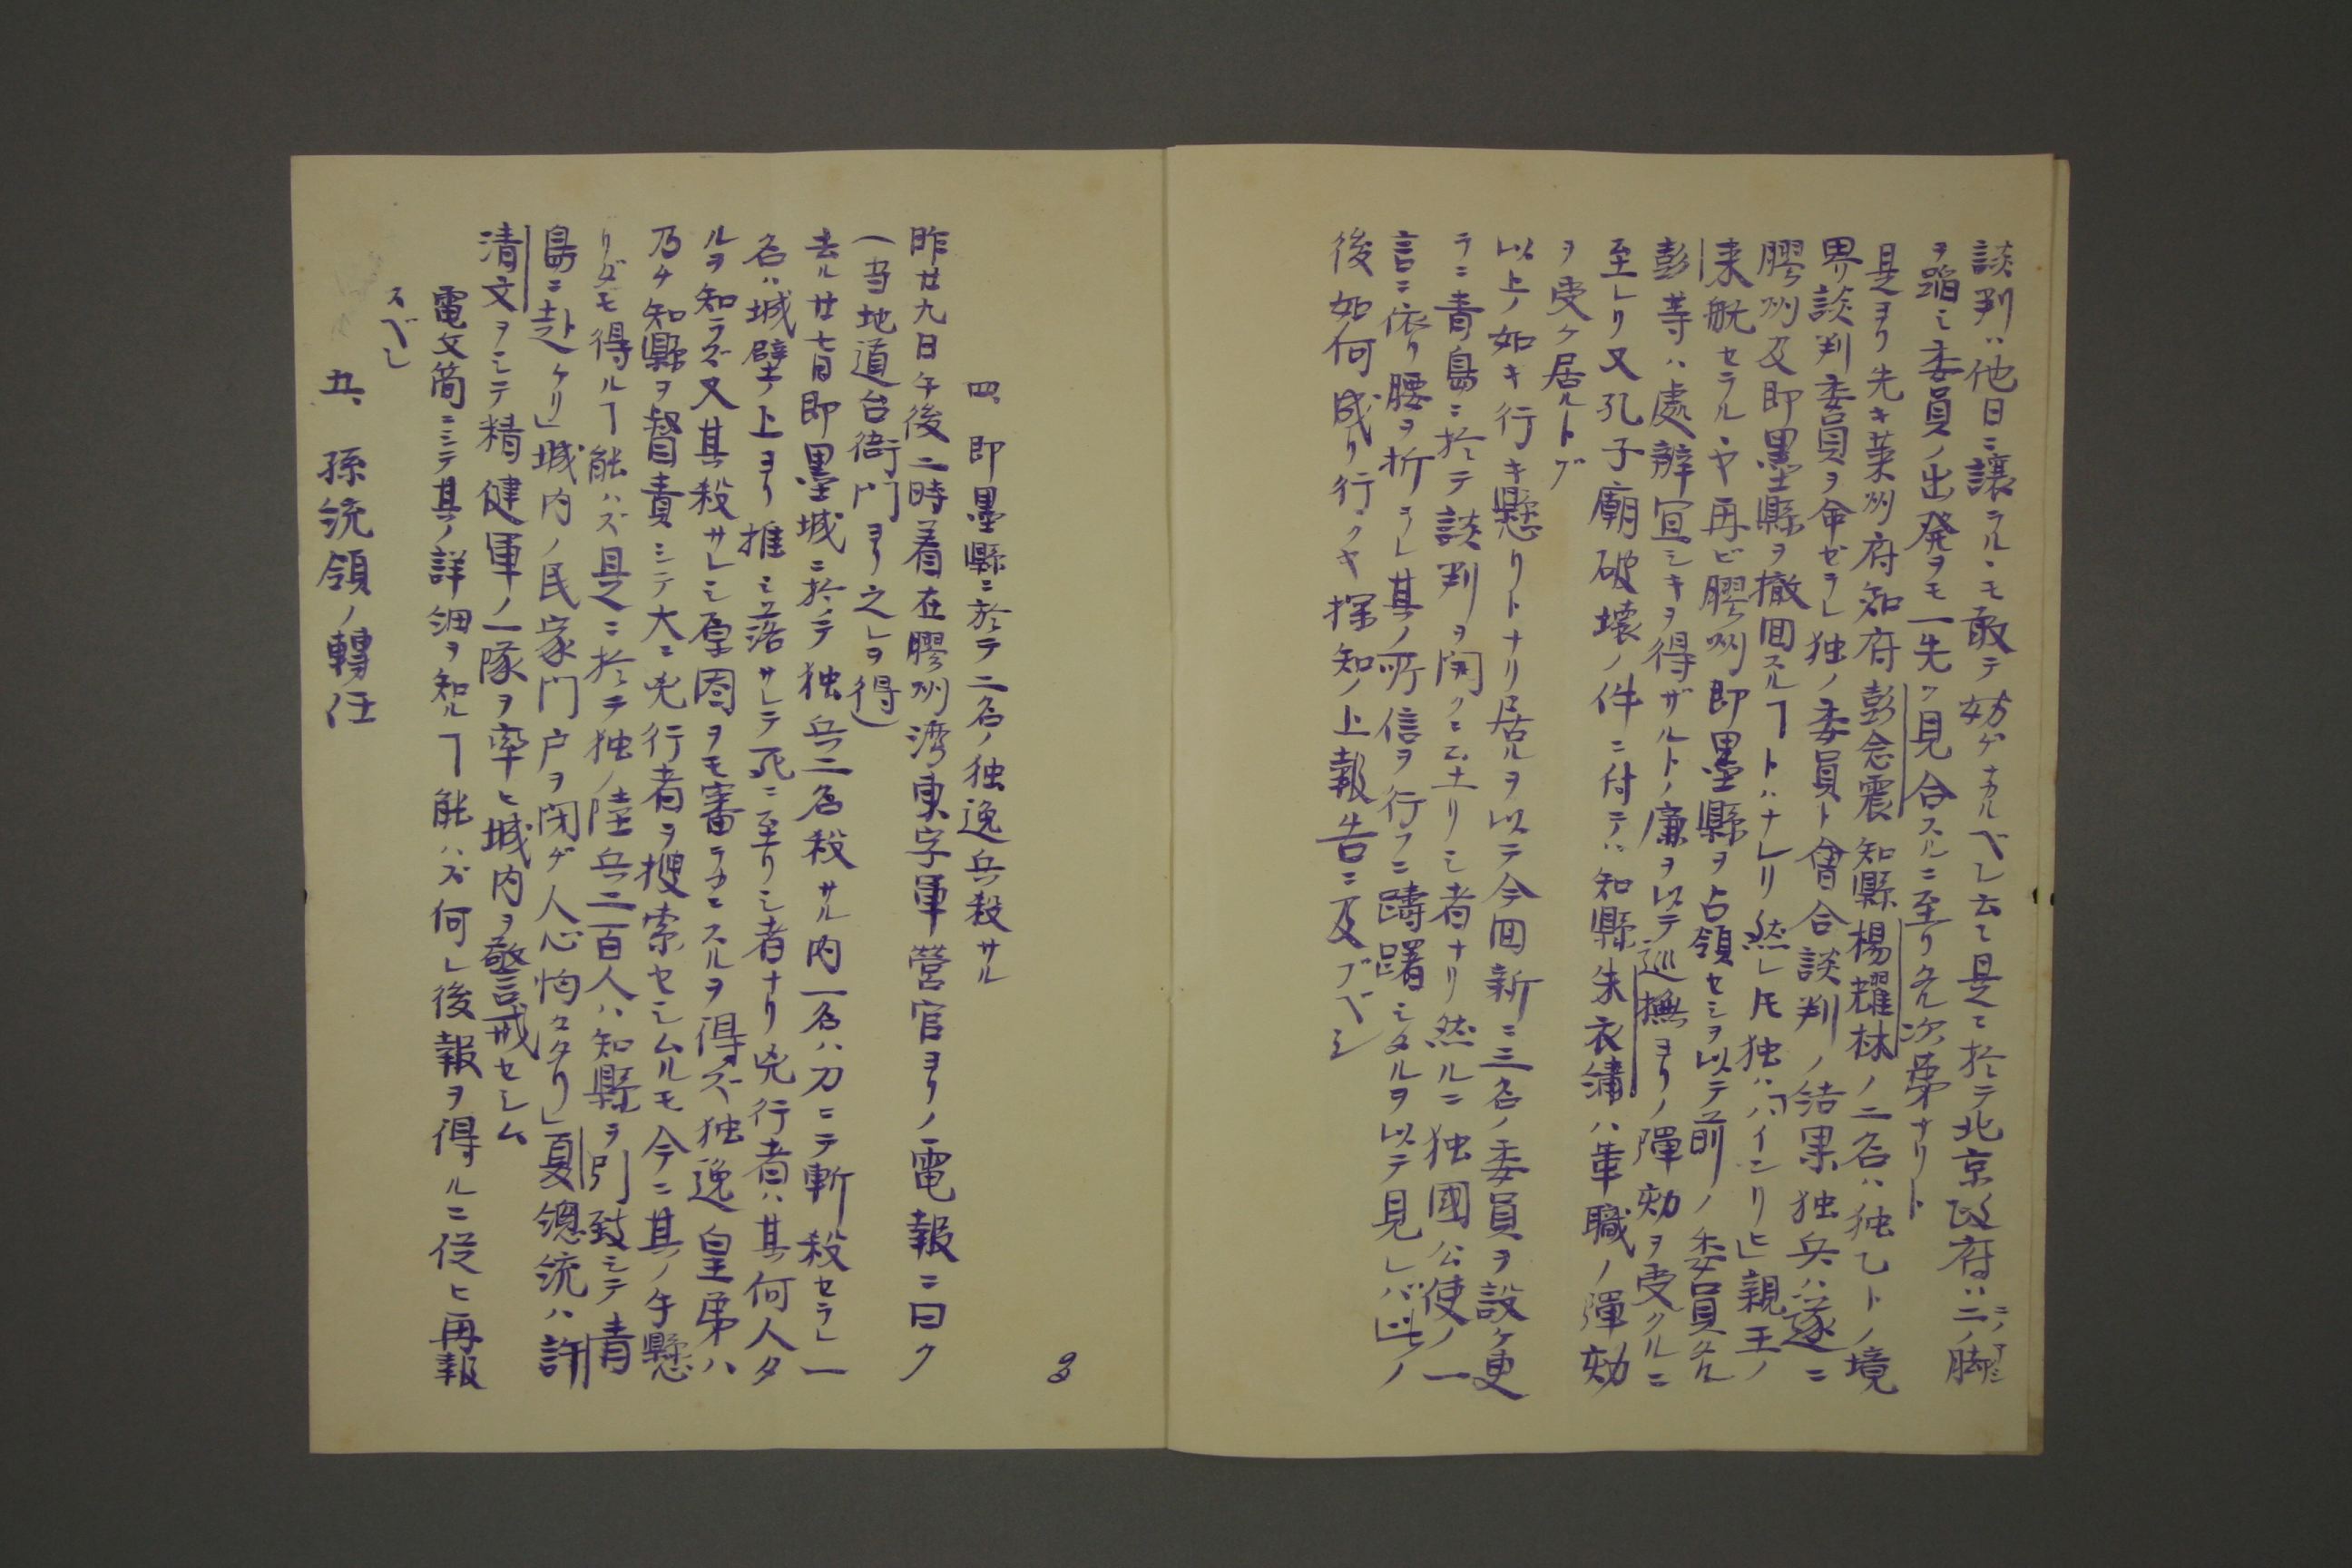 談判ハ他日ニ讓ラルヽモ敢テ妨ゲナカルベシ云々是ニ於テ北京政府ハ二ノ脚
ニノアシ
ヲ蹈ミ委員ノ出発ヲモ一先ヅ見合スルニ至リ多次第ナリト
是ヨリ先キ莱州府知府彭念震知縣楊耀林ノ二名ハ独乙トノ境
界談判委員ヲ命ゼラレ独ノ委員ト會合談判ノ結果独兵ハ遂ニ
膠州及即墨縣ヲ撤囬スルヿトハナレリ然レ𪜈独ハ「ハインリヒ」親王ノ
来航セラルヤ再ビ膠州即墨縣ヲ占領セシヲ以テ前ノ委員
彭等ハ處辨宜シキヲ得ザルトノ廉ヲ以テ巡撫ヨリノ彈効ヲ受クルニ
至レリ又孔子廟破壊ノ件ニ付テハ知縣朱衣繍ハ革職ノ彈効
ヲ受ケ居ルト
以上ノ如キ行キ懸リトナリ居ルヲ以テ今囬新ニ三名ノ委員ヲ設ケ更
ラニ青島ニ於テ談判ヲ開クニ至リシ者ナリ然ルニ独國公使ノ一
言ニ依リ腰ヲ折ラレ其ノ所信ヲ行フニ躊躇シタルヲ以テ見レバ此ノ
後如何成リ行クヤ探知ノ上報告ニ及ブベシ
8
四、即墨縣ニ於テ二名ノ独逸兵殺サル
昨廿九日午後二時着在膠州湾東字軍營官ヨリノ電報ニ曰ク
(当地道台衙門ヨリ之レヲ得)
去ル廿七日即墨城ニ於テ独兵二名殺サル内一名ハ刀ニテ斬殺セラレ一
名ハ城壁上ヨリ推シ落サレテ死ニ至リシ者ナリ兇行者ハ其何人タ
ルヲ知ラズ又其殺サレシ原因ヲモ審ラカニスルヲ得ズ独逸皇弟ハ
乃チ知縣ヲ督責シテ大ニ兇行者ヲ捜索セシムルモ今ニ其ノ手懸
リダモ得ルヿ能ハズ是ニ於テ独ノ陸兵二百人ハ知縣ヲ引致シテ青
島ニ赴ケリ」城内ノ民家門戸ヲ閉ヂ人心恟々タリ」夏總統ハ許
清文ヲシテ精健軍ノ一隊ヲ率ヒ城内ヲ警戒セシム
電文簡ニシテ其ノ詳細ヲ知ルヿ能ハズ何レ後報ヲ得ルニ従ヒ再報
スベシ
五、孫統領ノ轉任